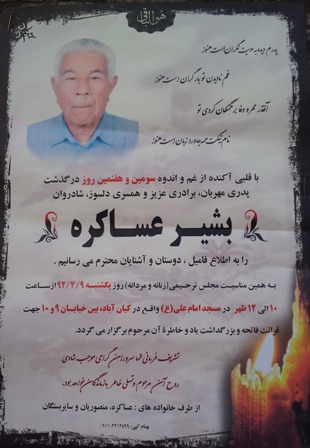 هوالباقی
پدرم دیده به سویت نگران است هنوز
غم نادیدن تو بار گران است هنوز
آنقدر مهر و وفا بر همگان کردی تو
نام نیکت همه جا ورد زبان است هنوز
با قلبی آکنده از غم و اندوه سومین و هفتمین روز درگذشت
پدری مهربان، برادری عزیز و همسری دلسوز، شادروان
بشیر عساکره
را به اطلاع فامیل ، دوستان و آشنایان محترم می رسانیم .
به همین مناسبت مجلس ترحیمی (زنانه و مردانه) روز یکشنبه ۹۲/۴/۹ از ساعت
۱۰ الی ۱۲ ظهر در مسجد امام علی (ع) واقع در کیان آباد، بین خیابان ۹ و ۱۰ جهت
قرائت فاتحه و بزرگداشت یاد و خاطرۀ آن مرحوم برگزار می گردد.
تشریف فرمائی شما سروران گرامی موجب شادی
روح آن مرحوم و تسلی خاطر بازماندگان خواهد بود.
از طرف خانواده های : عساکره، منصوریان و سایر بستگان